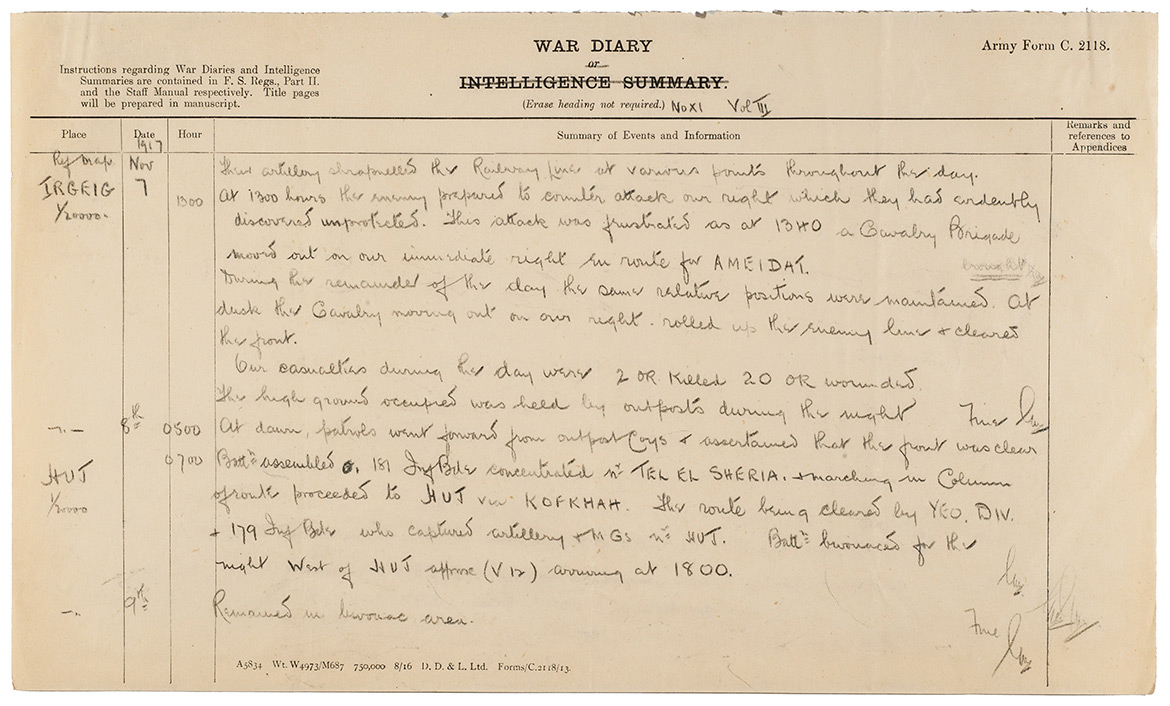 WAR DIARY
or
INTELLIGENCE SUMMARY.
(Erase heading not required.) No XI Vol III
Army Form C. 2118.
Instructions regarding War Diaries and Intelligence
Summaries are contained in F. S. Regs., Part II.
and the Staff Manual respectively. Title pages
will be prepared in manuscript.
Place Date Hour Summary of Events and Information Remarks and references to Appendices
1917
Ref Map Nov Their artillery shrapnelled the Railway line at various points throughout the day.
IRGEIG 7 1300 At 1300 hours the enemy prepared to counter attack our right which they had evidently
1/20000. discovered unprotected. This attack was frustrated as at 1340 a Cavalry Brigade
moved out on our immediate right en route for AMEIDAT.
During the remainder of the day the same relative positions were maintained. At
dusk the Cavalry moving out on our right rolled up the enemy line & cleared
the front.
Our casualties during the day were 2 OR killed 20 OR wounded.
The high ground occupied was held by outposts during the night Fine
-"- 8th 0500 At dawn, patrols went forward from outpost Coys & assertained that the front was clear
HUJ 0700 Battn assembled 181 Inf Bde concentrated nr TEL EL SHERIA. & marching in Column
1/20000 of route proceeded to HUJ via KOFKHAH. The route being cleared by YEO. DIV.
+ 179 Inf Bde who captured artillery + MGs nr HUJ. Battn bivouaced for the
night West of HUJ approx (V12) arriving at 1800.
-"- 9th Remained in bivouac area. Fine
A5834 Wt. W4973/M687 750,000 8/16 D. D. & L. Ltd. Forms/C.2118/13.